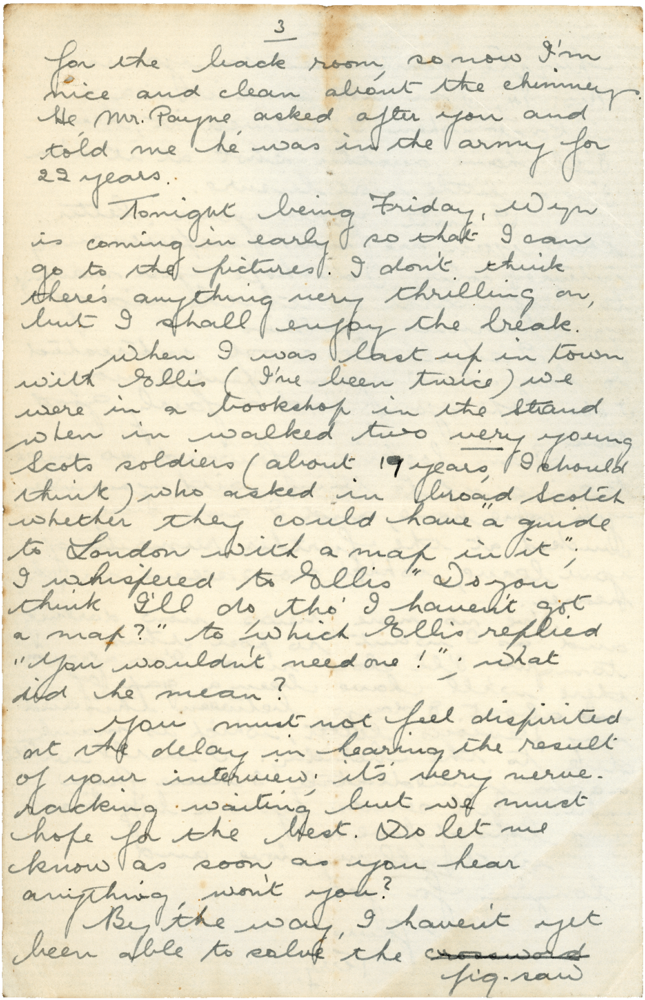 3
for the back room, so now I'm
nice and clean about the chimneys.
He Mr. Payne asked after you and
told me he was in the army for
22 years.
Tonight being Friday, Wyn
is coming in early so that I can
go to the pictures. I don't think
there's anything very thrilling on,
but I shall enjoy the break.
When I was last up in town
with Ellis (I've been twice) we
were in a bookshop in the Strand
when in walked two very young
Scots soldiers (about 19 years, I should
think) who asked in broad Scotch
whether they could have "a guide
to London with a map in it";
I whispered to Ellis "Do you
think I'll do tho' I haven't got
a map?" to which Ellis replied
"You wouldn't need one!"; what
did he mean?
You must not feel dispirited
at the delay in hearing the result
of your interview; it's very nerve-
racking waiting but we must
hope for the best. Do let me
know as soon as you hear
anything, won't you?
By the way, I haven't yet
been able to solve the crossword
jig-saw